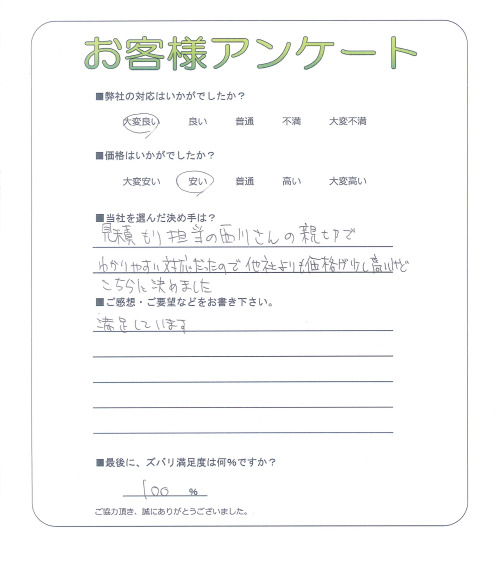 お客様アンケート
■弊社の対応はいかがでしたか？
大変良い 良い 普通 不満 大変不満
■価格はいかがでしたか？
大変安い 安い 普通 高い 大変高い
■当社を選んだ決め手は？
見積もり担当の西川さんの親切で
わかりやすい対応だったので他社よりも価格が少し高いけど
こちらに決めました
■ご感想・ご要望などをお書き下さい。
満足しています
■最後に、ズバリ満足度は何%ですか？
100 %
ご協力頂き、誠にありがとうございました。